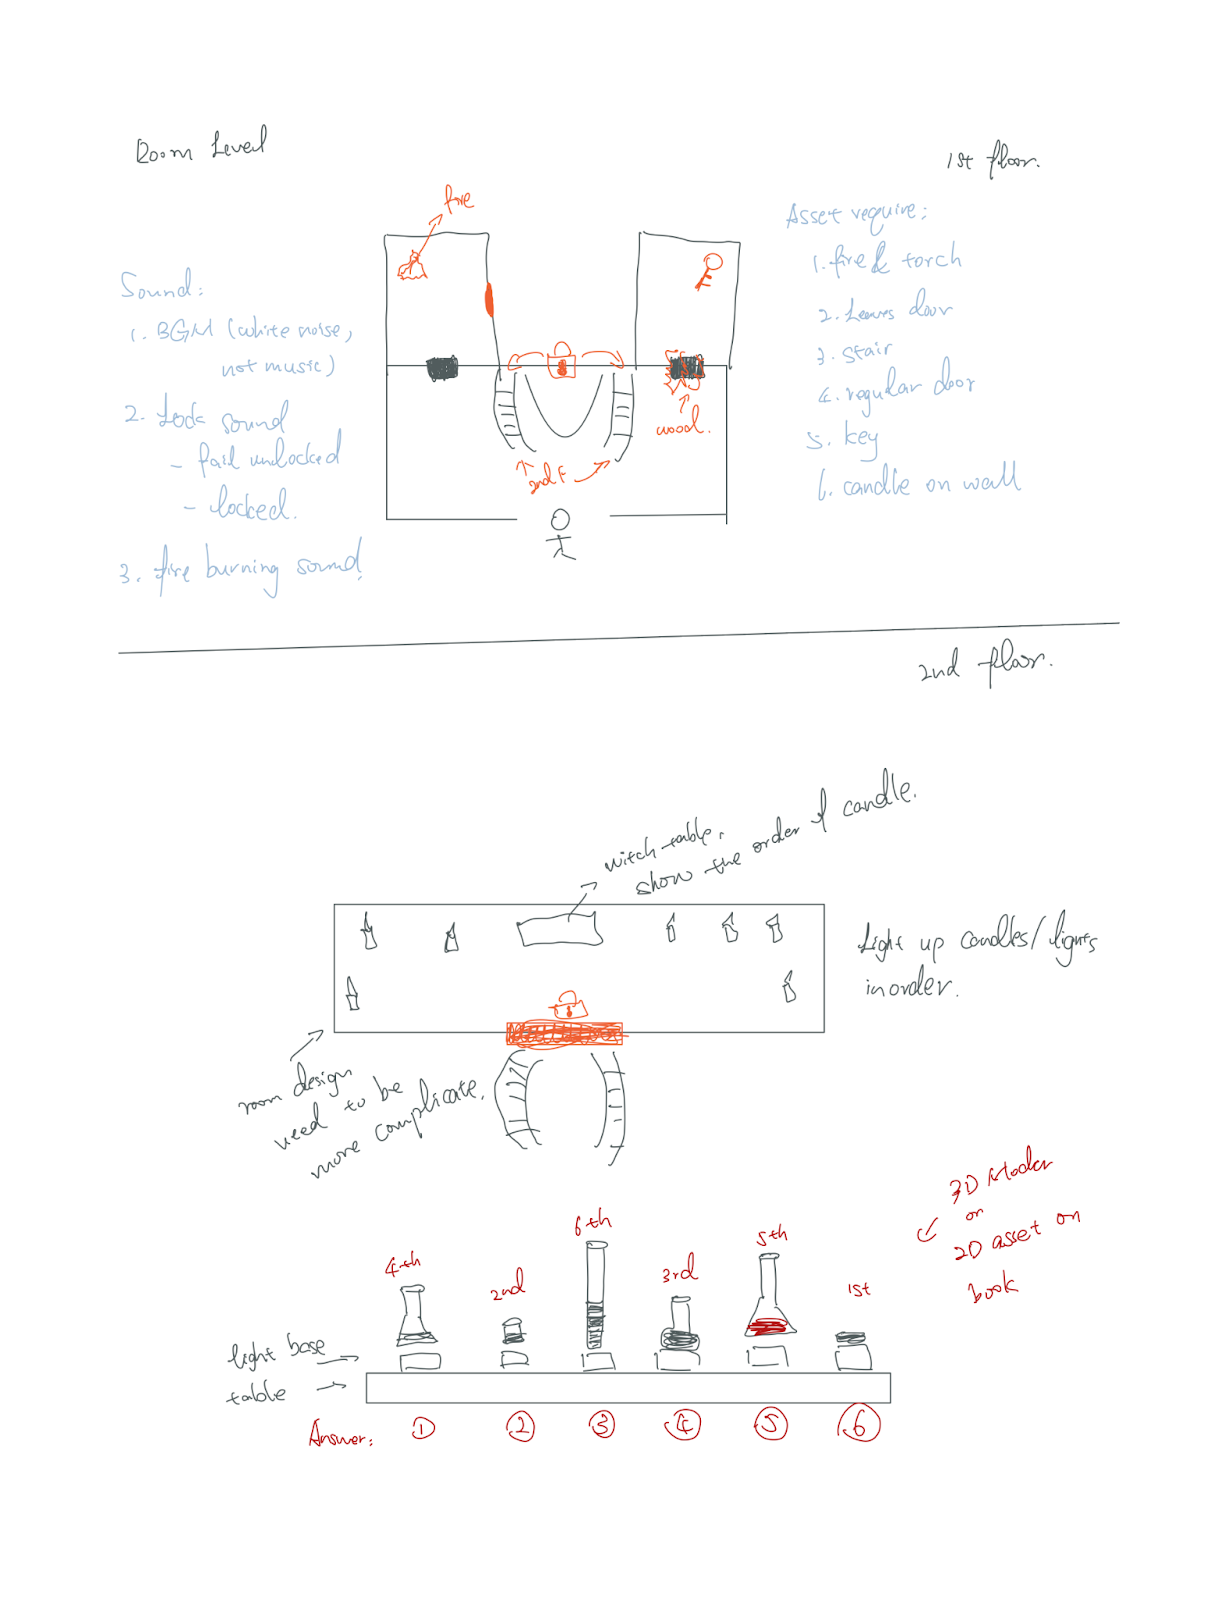 Room Level
1st floor.
fire
Asset require:
1. fire & torch
2. Leaves door
3. stair
4. regular door
5. key
6. candle on wall
Sound:
1. BGM (white noise,
not music)
2. Lock sound
- fail unlocked
- locked.
3. fire burning sound!
wood.
2nd F
2nd floor.
witch table,
show the order of candle.
Light up candles/lights
in order.
room design
need to be
more complicate.
3D Model
or
2D asset on
book
4th
2nd
6th
3rd
5th
1st
light base
table
Answer: ① ② ③ ④ ⑤ ⑥